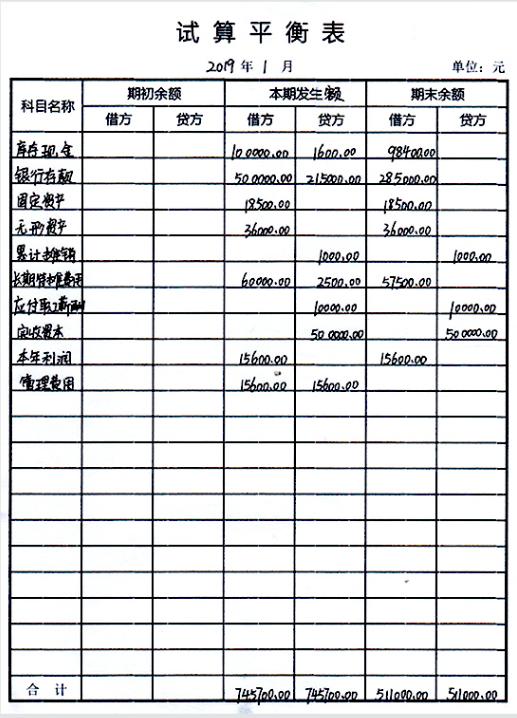 试算平衡表
2019年1月 单位:元
科目名称 期初余额 本期发生额 期末余额
借方 贷方 借方 贷方 借方 贷方
库存现金 100000.00 1600.00 98400.00
银行存款 500000.00 215000.00 285000.00
固定资产 18500.00 18500.00
无形资产 36000.00 36000.00
累计摊销 1000.00 1000.00
长期待摊费用 60000.00 2500.00 57500.00
应付职工薪酬 10000.00 10000.00
实收资本 500000.00 500000.00
本年利润 15600.00 15600.00
管理费用 15600.00 15600.00
合计 745700.00 745700.00 511000.00 511000.00